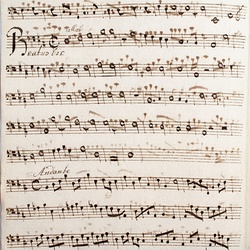 Beatus vir
Andante